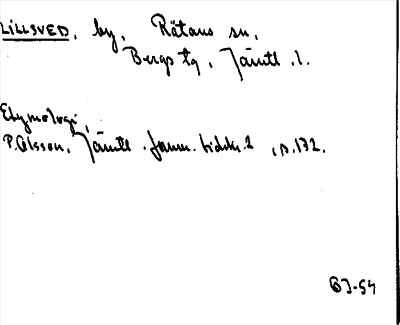 LILLSVED, by, Rätans sn,
Bergs tg, Jämtl. l.
Etymologi,
P. Olsson, Jämtl. forns. tidskr. 2, s. 132.
BJ-54